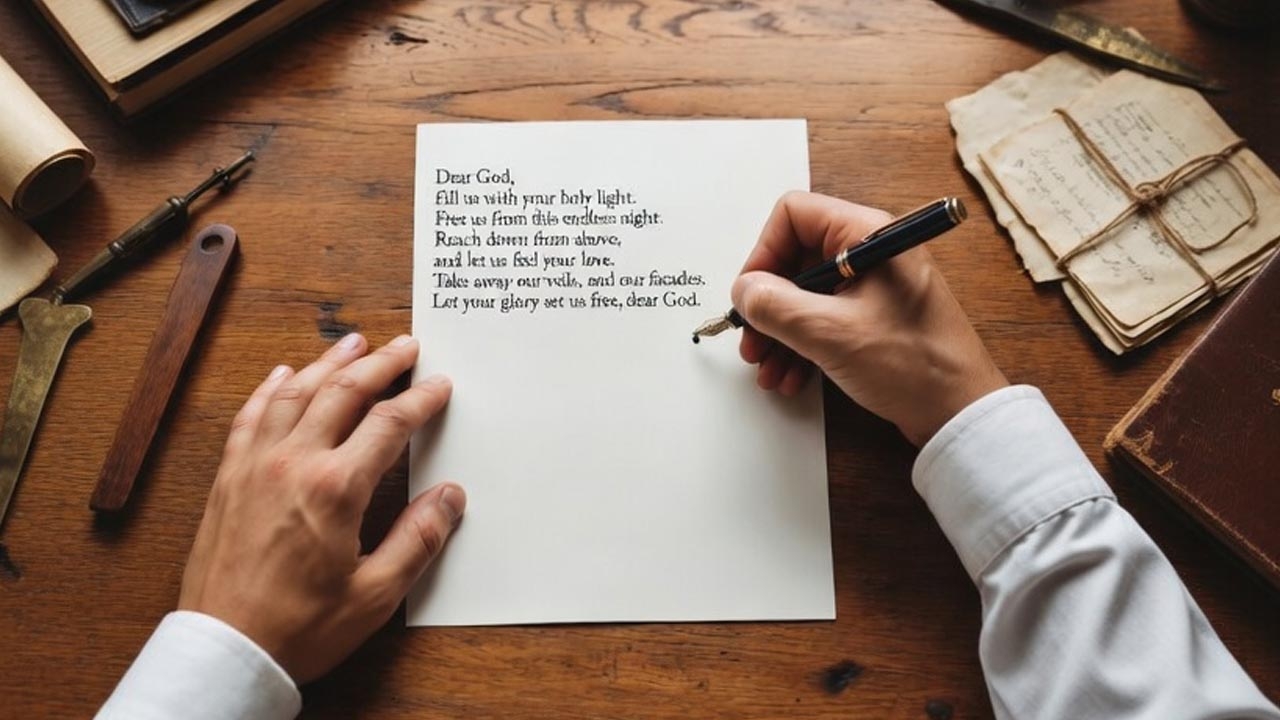 Dear God,
Fill us with your holy light.
Free us from this endless night.
Reach down from above,
and let us feel your love.
Take away our veils, and our facades.
Let your glory set us free, dear God.